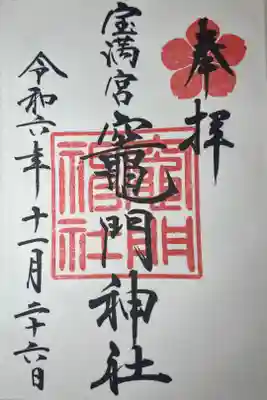 奉拝
宝満宮
竈門神社
令和六年十一月二十六日
竈門神社